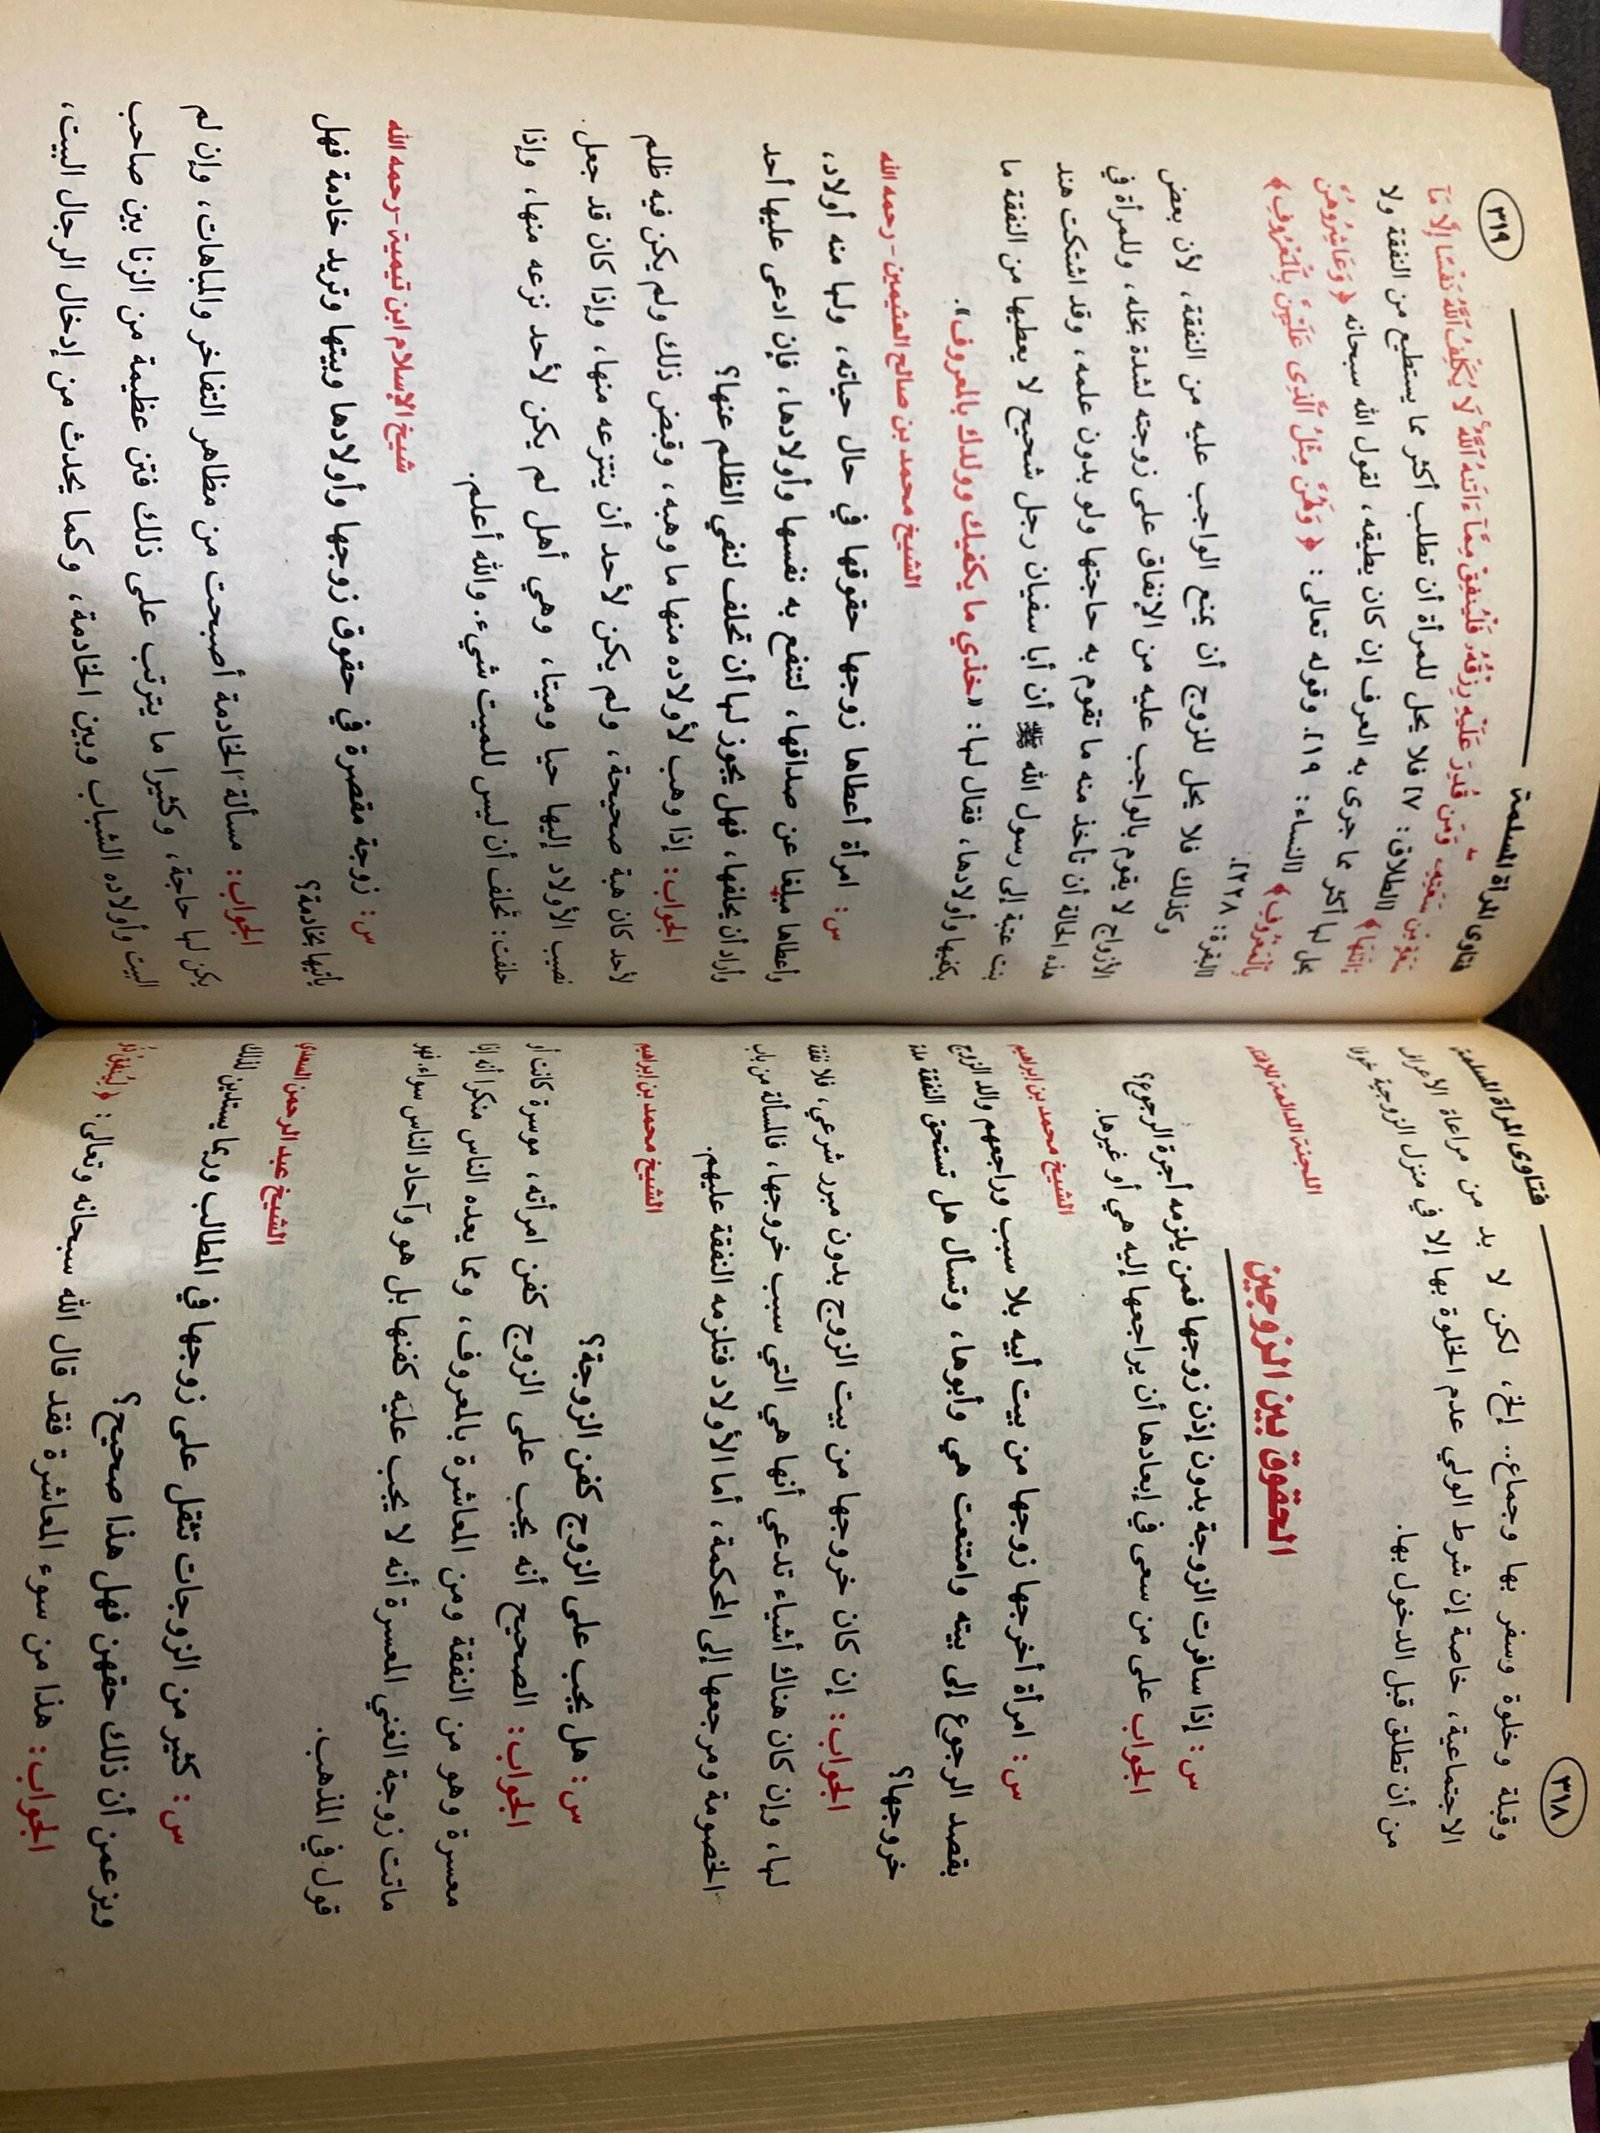 ٣١٨
فتاوى المرأة المسلمة
وقبلة وخلوة وسفر بها وجماع.. إلخ، لكن لا بد من مراعاة الأعراف
الاجتماعية، خاصة إن شرط الولي عدم الخلوة بها إلا في منزل الزوجية خوفا
من أن تطلق قبل الدخول بها.
اللجنة الدائمة للإفتاء
الحقوق بين الزوجين
س: إذا سافرت الزوجة بدون إذن زوجها فمن يلزمه أجرة الرجوع؟
الجواب على من سعى في إبعادها أن يراجعها إليه هي أو غيرها.
الشيخ محمد بن إبراهيم
س: امرأة أخرجها زوجها من بيت أبيه بلا سبب وراجعهم والد الزوج
بقصد الرجوع إلى بيته وامتنعت هي وأبوها، وتسأل هل تستحق النفقة مدة
خروجها؟
الجواب: إن كان خروجها من بيت الزوج بدون مبرر شرعي، فلا نفقة
لها، وإن كان هناك أشياء تدعي أنها هي التي سبب خروجها، فالمسألة من باب
الخصومة ومرجعها إلى المحكمة، أما الأولاد فتلزمه النفقة عليهم.
الشيخ محمد بن إبراهيم
س: هل يجب على الزوج كفن الزوجة؟
الجواب: الصحيح أنه يجب على الزوج كفن امرأته، موسرة كانت أو
معسرة وهو من النفقة ومن المعاشرة بالمعروف، ومما يعده الناس منكرا أنه إذا
ماتت زوجة الغني المعسرة أنه لا يجب عليه كفنها بل هو وآحاد الناس سواء، فهو
قول في المذهب.
الشيخ عبد الرحمن السعدي
س: كثير من الزوجات تثقل على زوجها في المطالب وربما يستدين لذلك
ويزعمن أن ذلك حقهن فهل هذا صحيح؟
الجواب: هذا من سوء المعاشرة فقد قال الله سبحانه وتعالى: ﴿لِيُنفِقْ ذُو
فتاوى المرأة المسلمة
٣١٩
سَعَةٍ مِّن سَعَتِهِ وَمَن قُدِرَ عَلَيْهِ رِزْقُهُ فَلْيُنفِقْ مِمَّآ ءَاتَىٰهُ ٱللَّهُ لَا يُكَلِّفُ ٱللَّهُ نَفْسًا إِلَّا مَآ
ءَاتَىٰهَا﴾ [الطلاق: ٧] فلا يحل للمرأة أن تطلب أكثر مما يستطيع من النفقة ولا
يحل لها أكثر مما جرى به العرف إن كان يطيقه، لقول الله سبحانه ﴿وَعَاشِرُوهُنَّ
بِٱلْمَعْرُوفِ﴾ [النساء: ١٩]. وقوله تعالى: ﴿وَلَهُنَّ مِثْلُ ٱلَّذِى عَلَيْهِنَّ بِٱلْمَعْرُوفِ﴾
[البقرة: ٢٢٨].
وكذلك فلا يحل للزوج أن يمنع الواجب عليه من النفقة، لأن بعض
الأزواج لا يقوم بالواجب عليه من الإنفاق على زوجته لشدة بخله، وللمرأة في
هذه الحالة أن تأخذ منه ما تقوم به حاجتها ولو بدون علمه، وقد اشتكت هند
بنت عتبة إلى رسول الله ﷺ أن أبا سفيان رجل شحيح لا يعطيها من النفقة ما
يكفيها وأولادها، فقال لها: «خذي ما يكفيك وولدك بالمعروف».
الشيخ محمد بن صالح العثيمين - رحمه الله
س: امرأة أعطاها زوجها حقوقها في حال حياته، ولها منه أولاد،
وأعطاها مبلغا عن صداقها، لتنفع به نفسها وأولادها، فإن ادعى عليها أحد
وأراد أن يحلفها، فهل يجوز لها أن تحلف لنفي الظلم عنها؟
الجواب: إذا وهب لأولاده منها ما وهبه، وقبض ذلك ولم يكن فيه ظلم
لأحد كان هبة صحيحة، ولم يكن لأحد أن ينتزعه منها، وإذا كان قد جعل
نصيب الأولاد إليها حيا وميتا، وهي أهل لم يكن لأحد نزعه منها، وإذا
حلفت: تحلف أن ليس للميت شيء. والله أعلم.
شيخ الإسلام ابن تيمية - رحمه الله
س: زوجة مقصرة في حقوق زوجها وأولادها وبيتها وتريد خادمة فهل
يأتيها بخادمة؟
الجواب: مسألة الخادمة أصبحت من مظاهر التفاخر والمباهات، وإن لم
يكن لها حاجة، وكثيرا ما يترتب على ذلك فتن عظيمة من الزنا بين صاحب
البيت وأولاده الشباب وبين الخادمة، وكما يحدث من إدخال الرجال البيت،